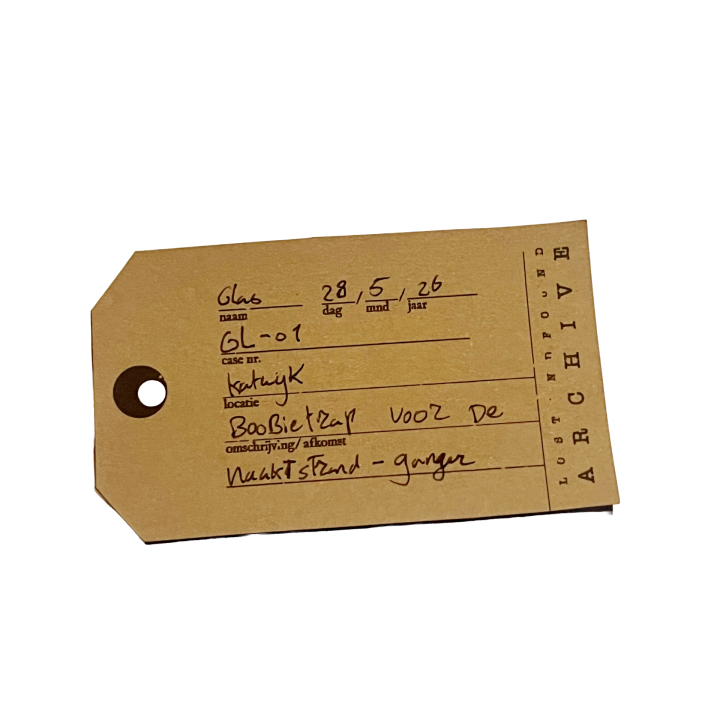 Glas 28 / 5 / 26
naam dag mnd jaar
GL-01
case nr.
Katwijk
locatie
BooBietrap voor De
omschrijving/ afkomst
naaktstrand - ganger
LOST · NDFOUND
ARCHIVE